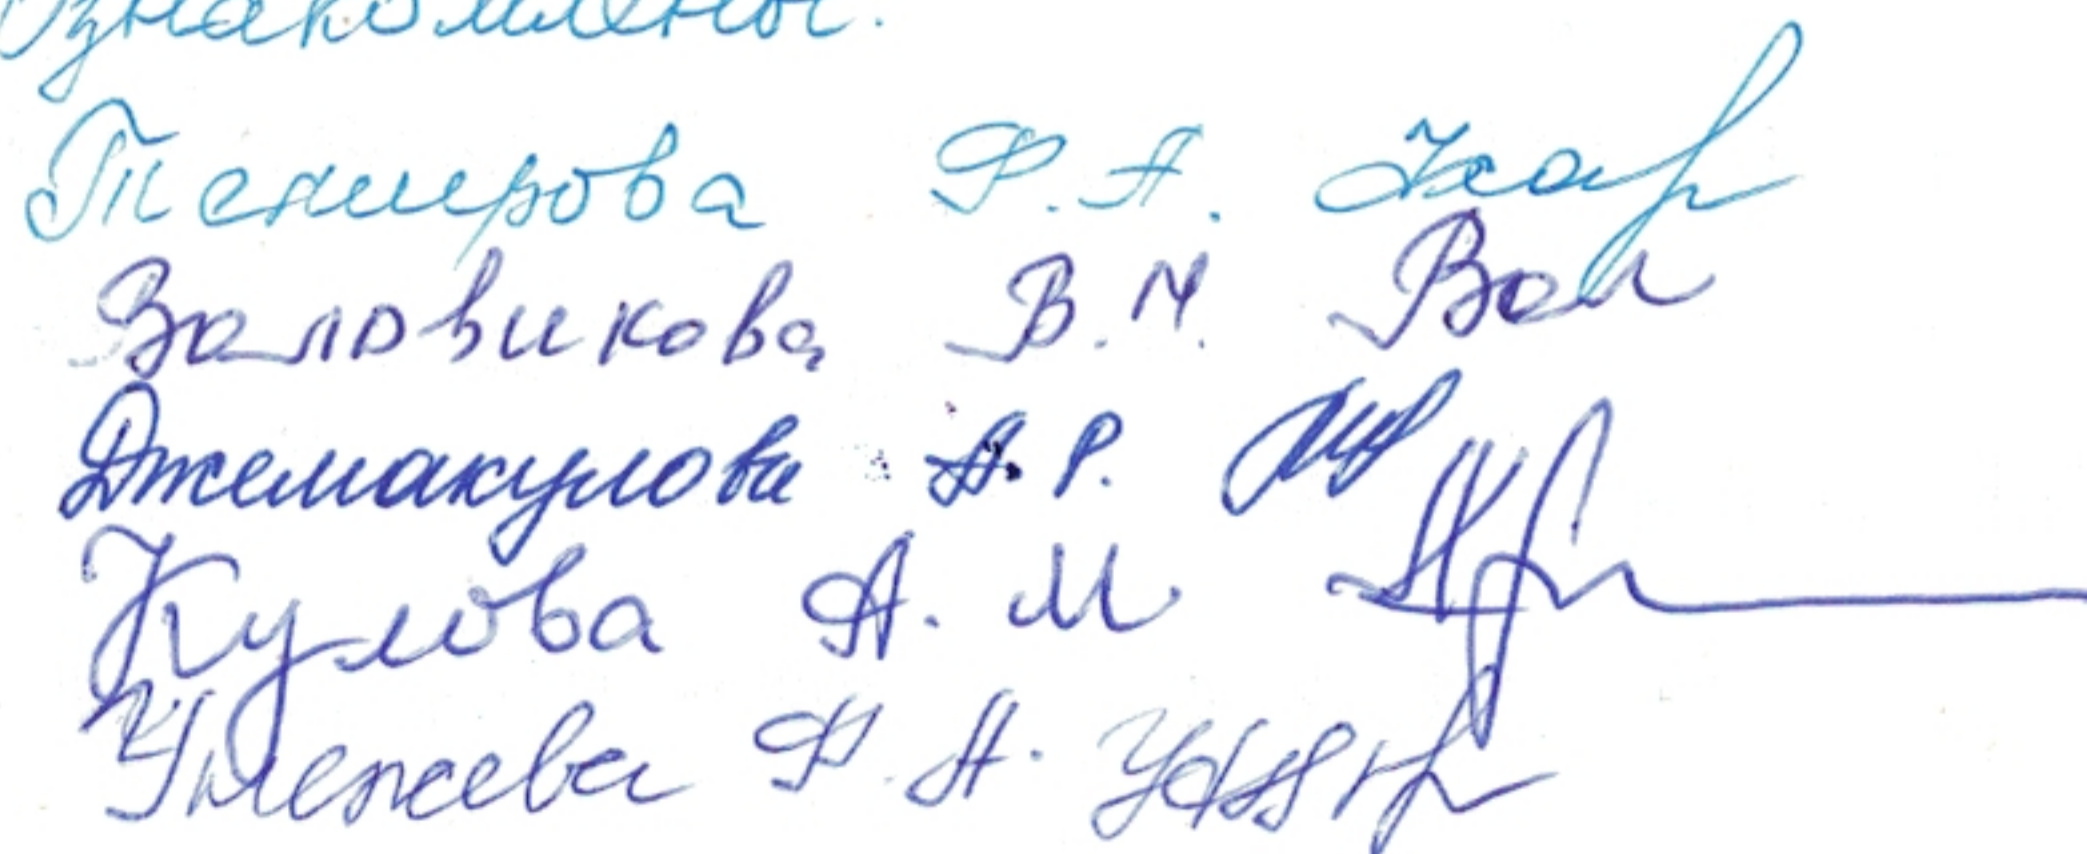 Ознакомлены.
Темирова Ф. А.
Заловикова В. М.
Джемакулова А. Р.
Кулова А. М
Унежева Ф. А.